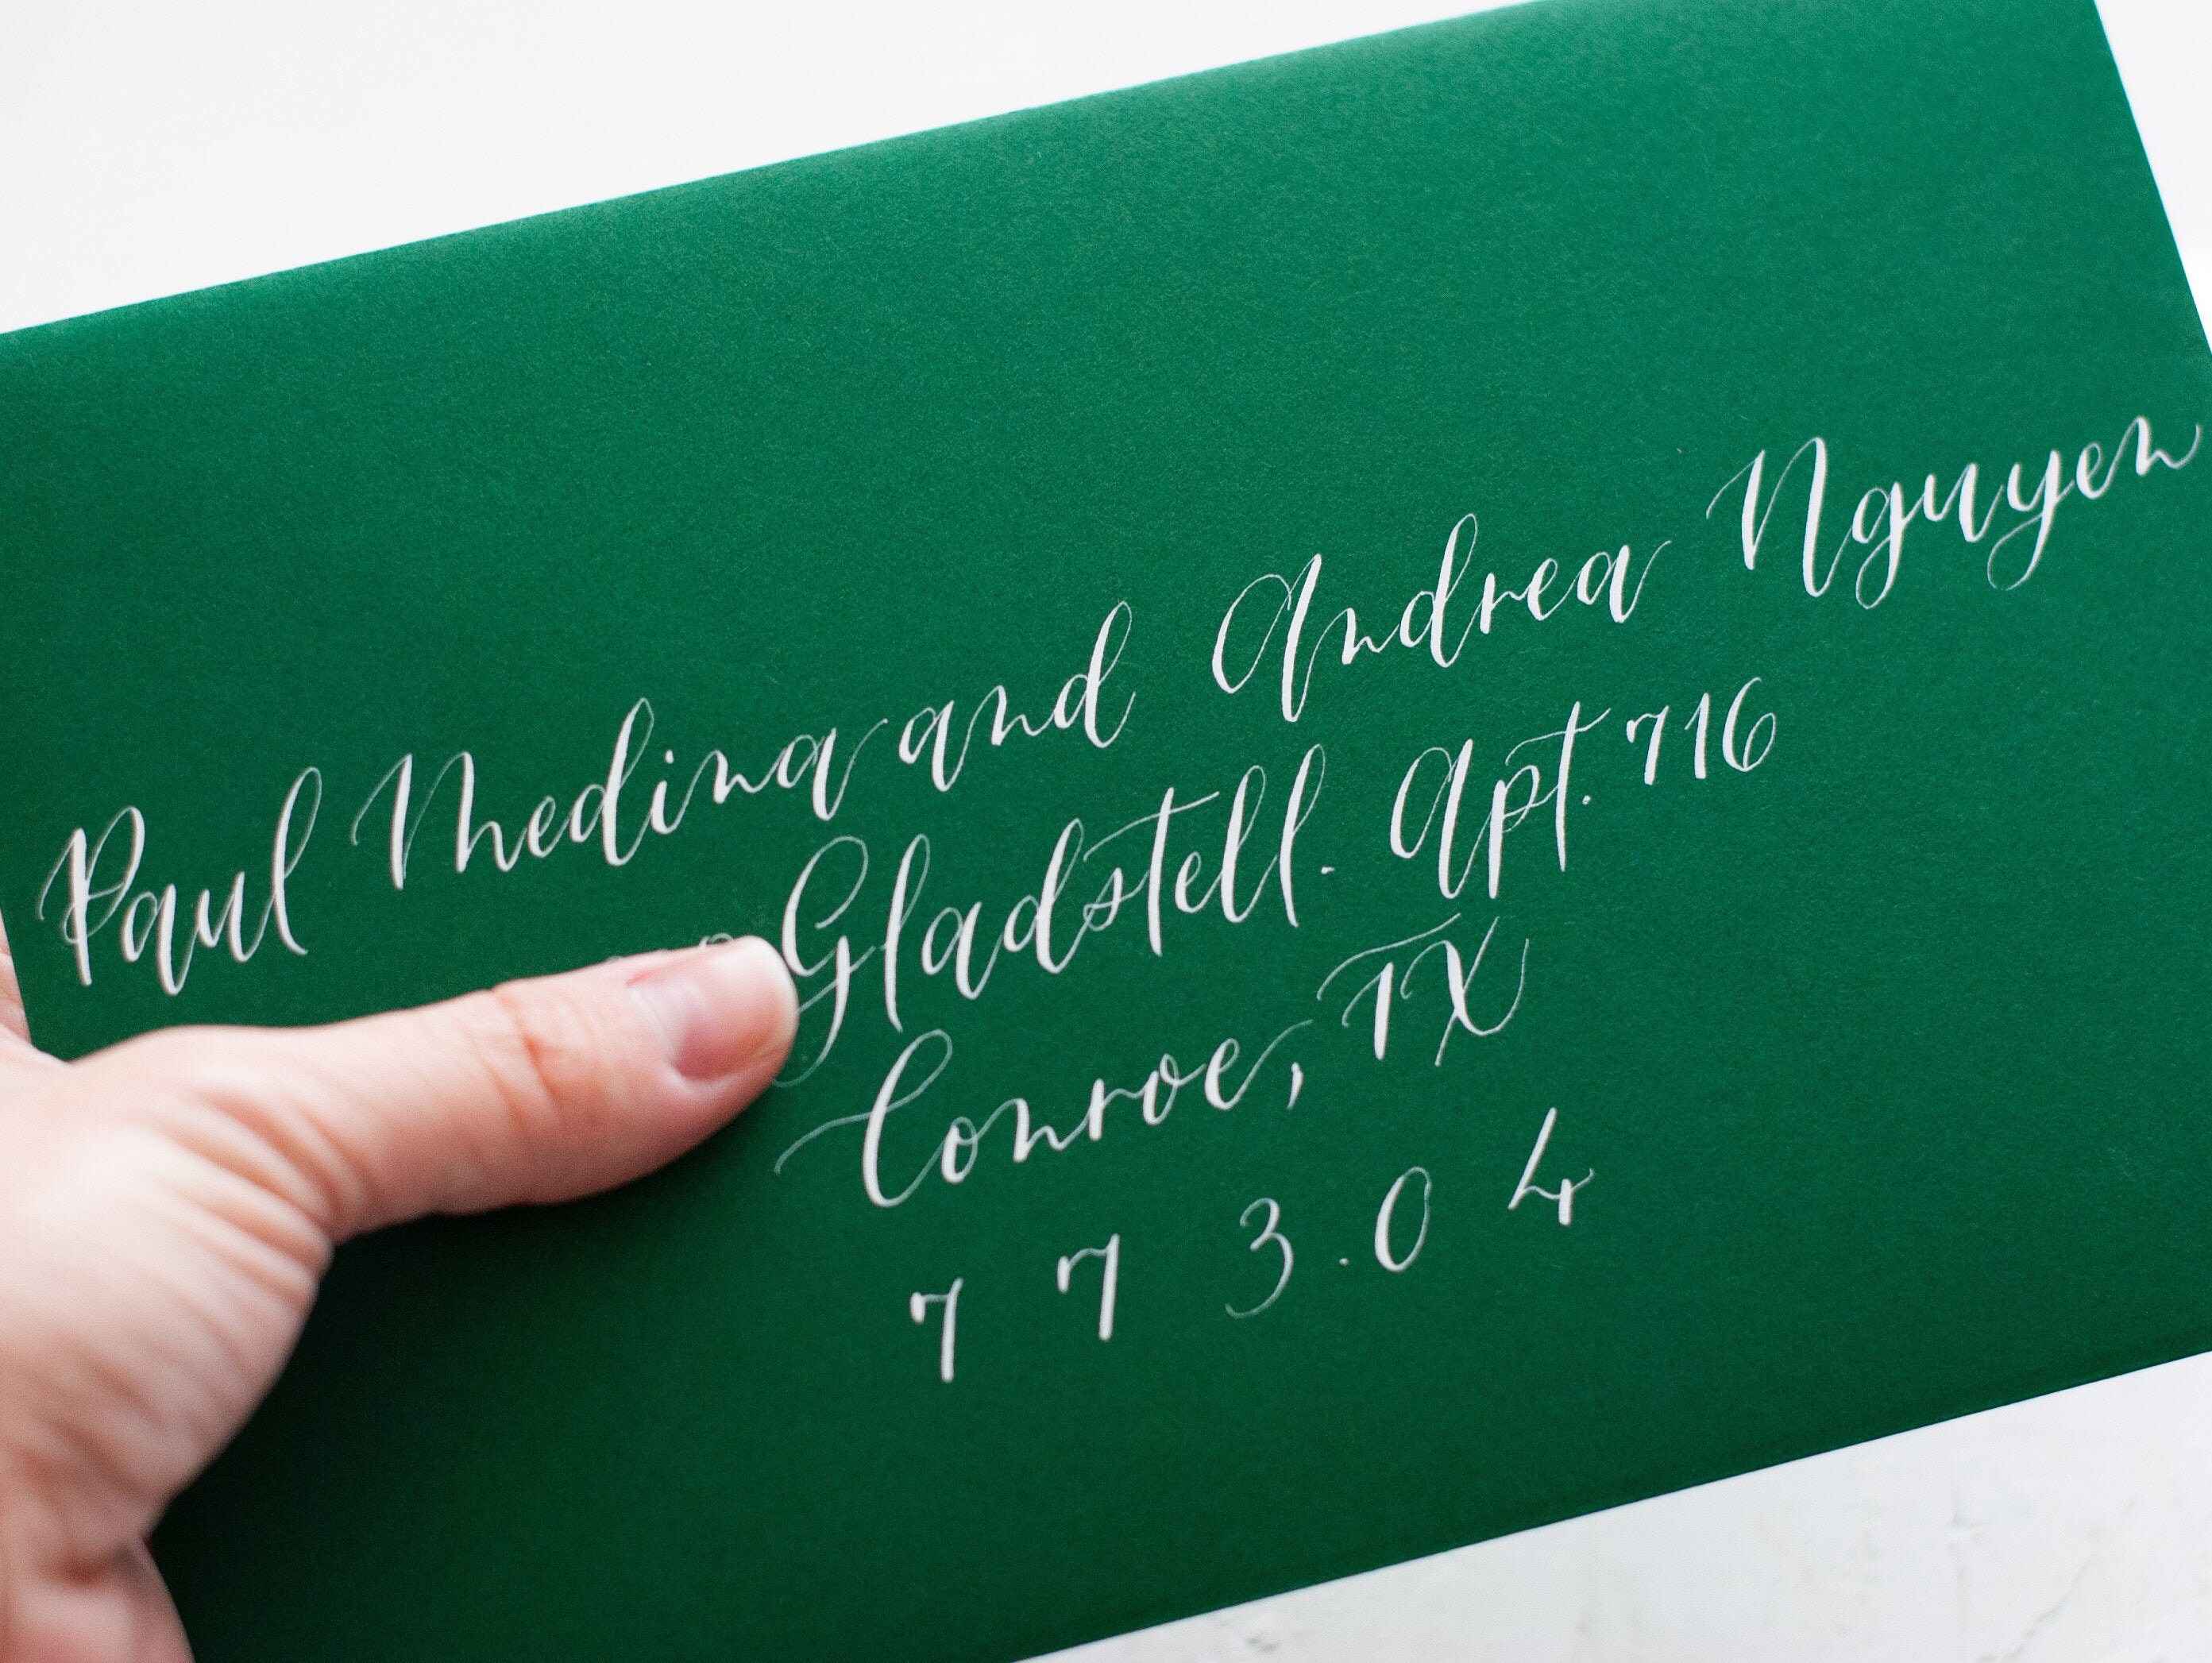 Paul Medina and Andrea Nguyen
Gladstell. Apt. 716
Conroe, TX
7 7 3 . 0 4